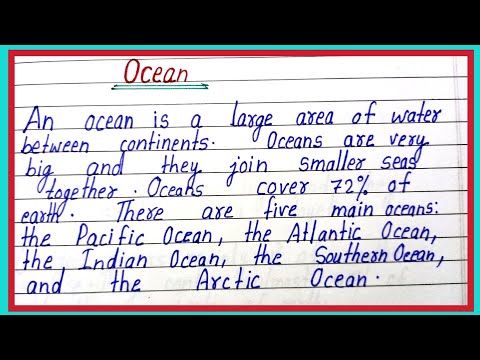 Ocean
An ocean is a large area of water
between continents. Oceans are very
big and they join smaller seas
together. Oceans cover 72% of
earth. There are five main oceans:
the Pacific Ocean, the Atlantic Ocean,
the Indian Ocean, the Southern Ocean,
and the Arctic Ocean.